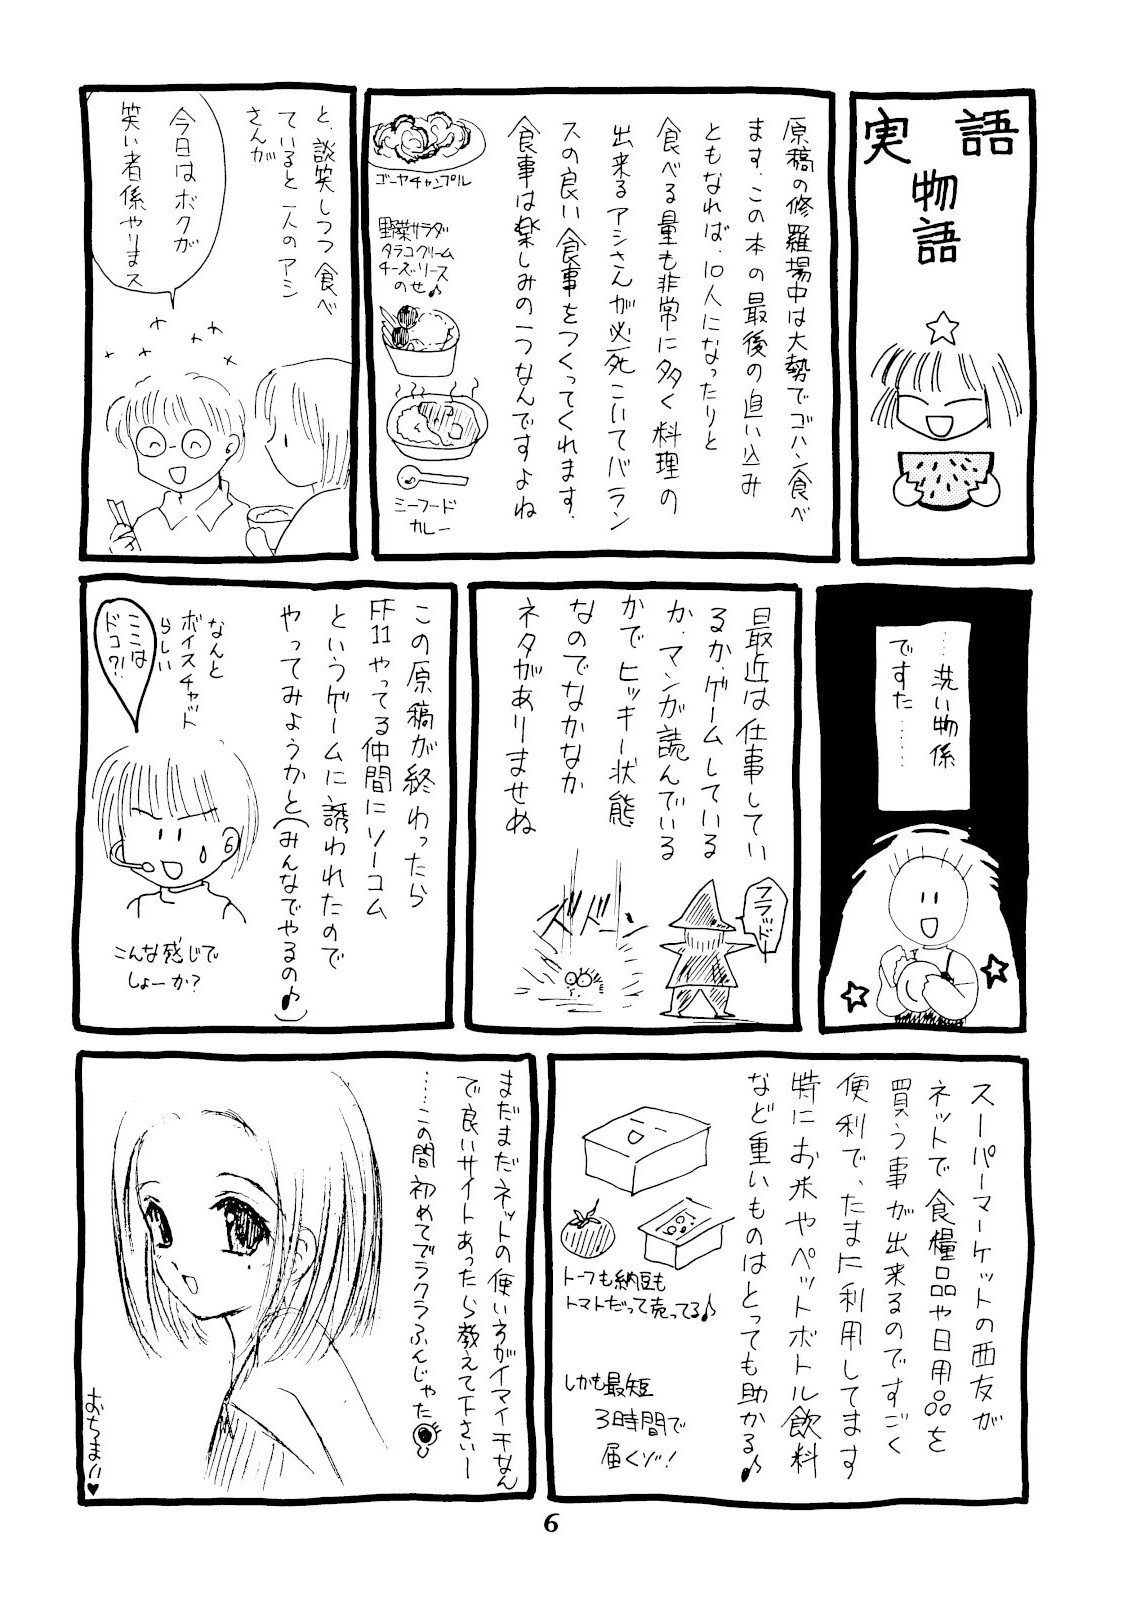 実語
物語
原稿の修羅場中は大勢でゴハン食べ
ます。この本の最後の追い込み
ともなれば、10人になったりと
食べる量も非常に多く料理の
出来るアシさんが必死こいてバラン
スの良い食事をつくってくれます。
食事は楽しみの一つなんですよね
ゴーヤチャンプル
野菜サラダ
タラコクリーム
チーズソース
のせ♪
シーフード
カレー
と、談笑しつつ食べ
ていると一人のアシ
さんが
今日はボクが
笑い者係やりまス
……洗い物係
ですた……
最近は仕事してい
るか、ゲームしている
か、マンガ読んでいる
かでヒッキー状態
なのでなかなか
ネタがありませぬ
フラッド
ズドドーン
この原稿が終わったら
FF11やってる仲間にソーコム
というゲームに誘われたので
やってみようかと(みんなでやるの♪)
なんと
ボイスチャット
らしい
ここは
ドコ?!
こんな感じで
しょーか?
スーパーマーケットの西友が
ネットで食糧品や日用品を
買う事が出来るのですごく
便利で、たまに利用してます
特にお米やペットボトル飲料
など重いものはとっても助かる♪
トーフも納豆も
トマトだって売ってる♪
しかも最短
3時間で
届くゾ!
まだまだネットの使い方がイマイチなん
で良いサイトあったら教えて下さいー
……この間初めてブラクラふんじゃた
おちまい♥
6